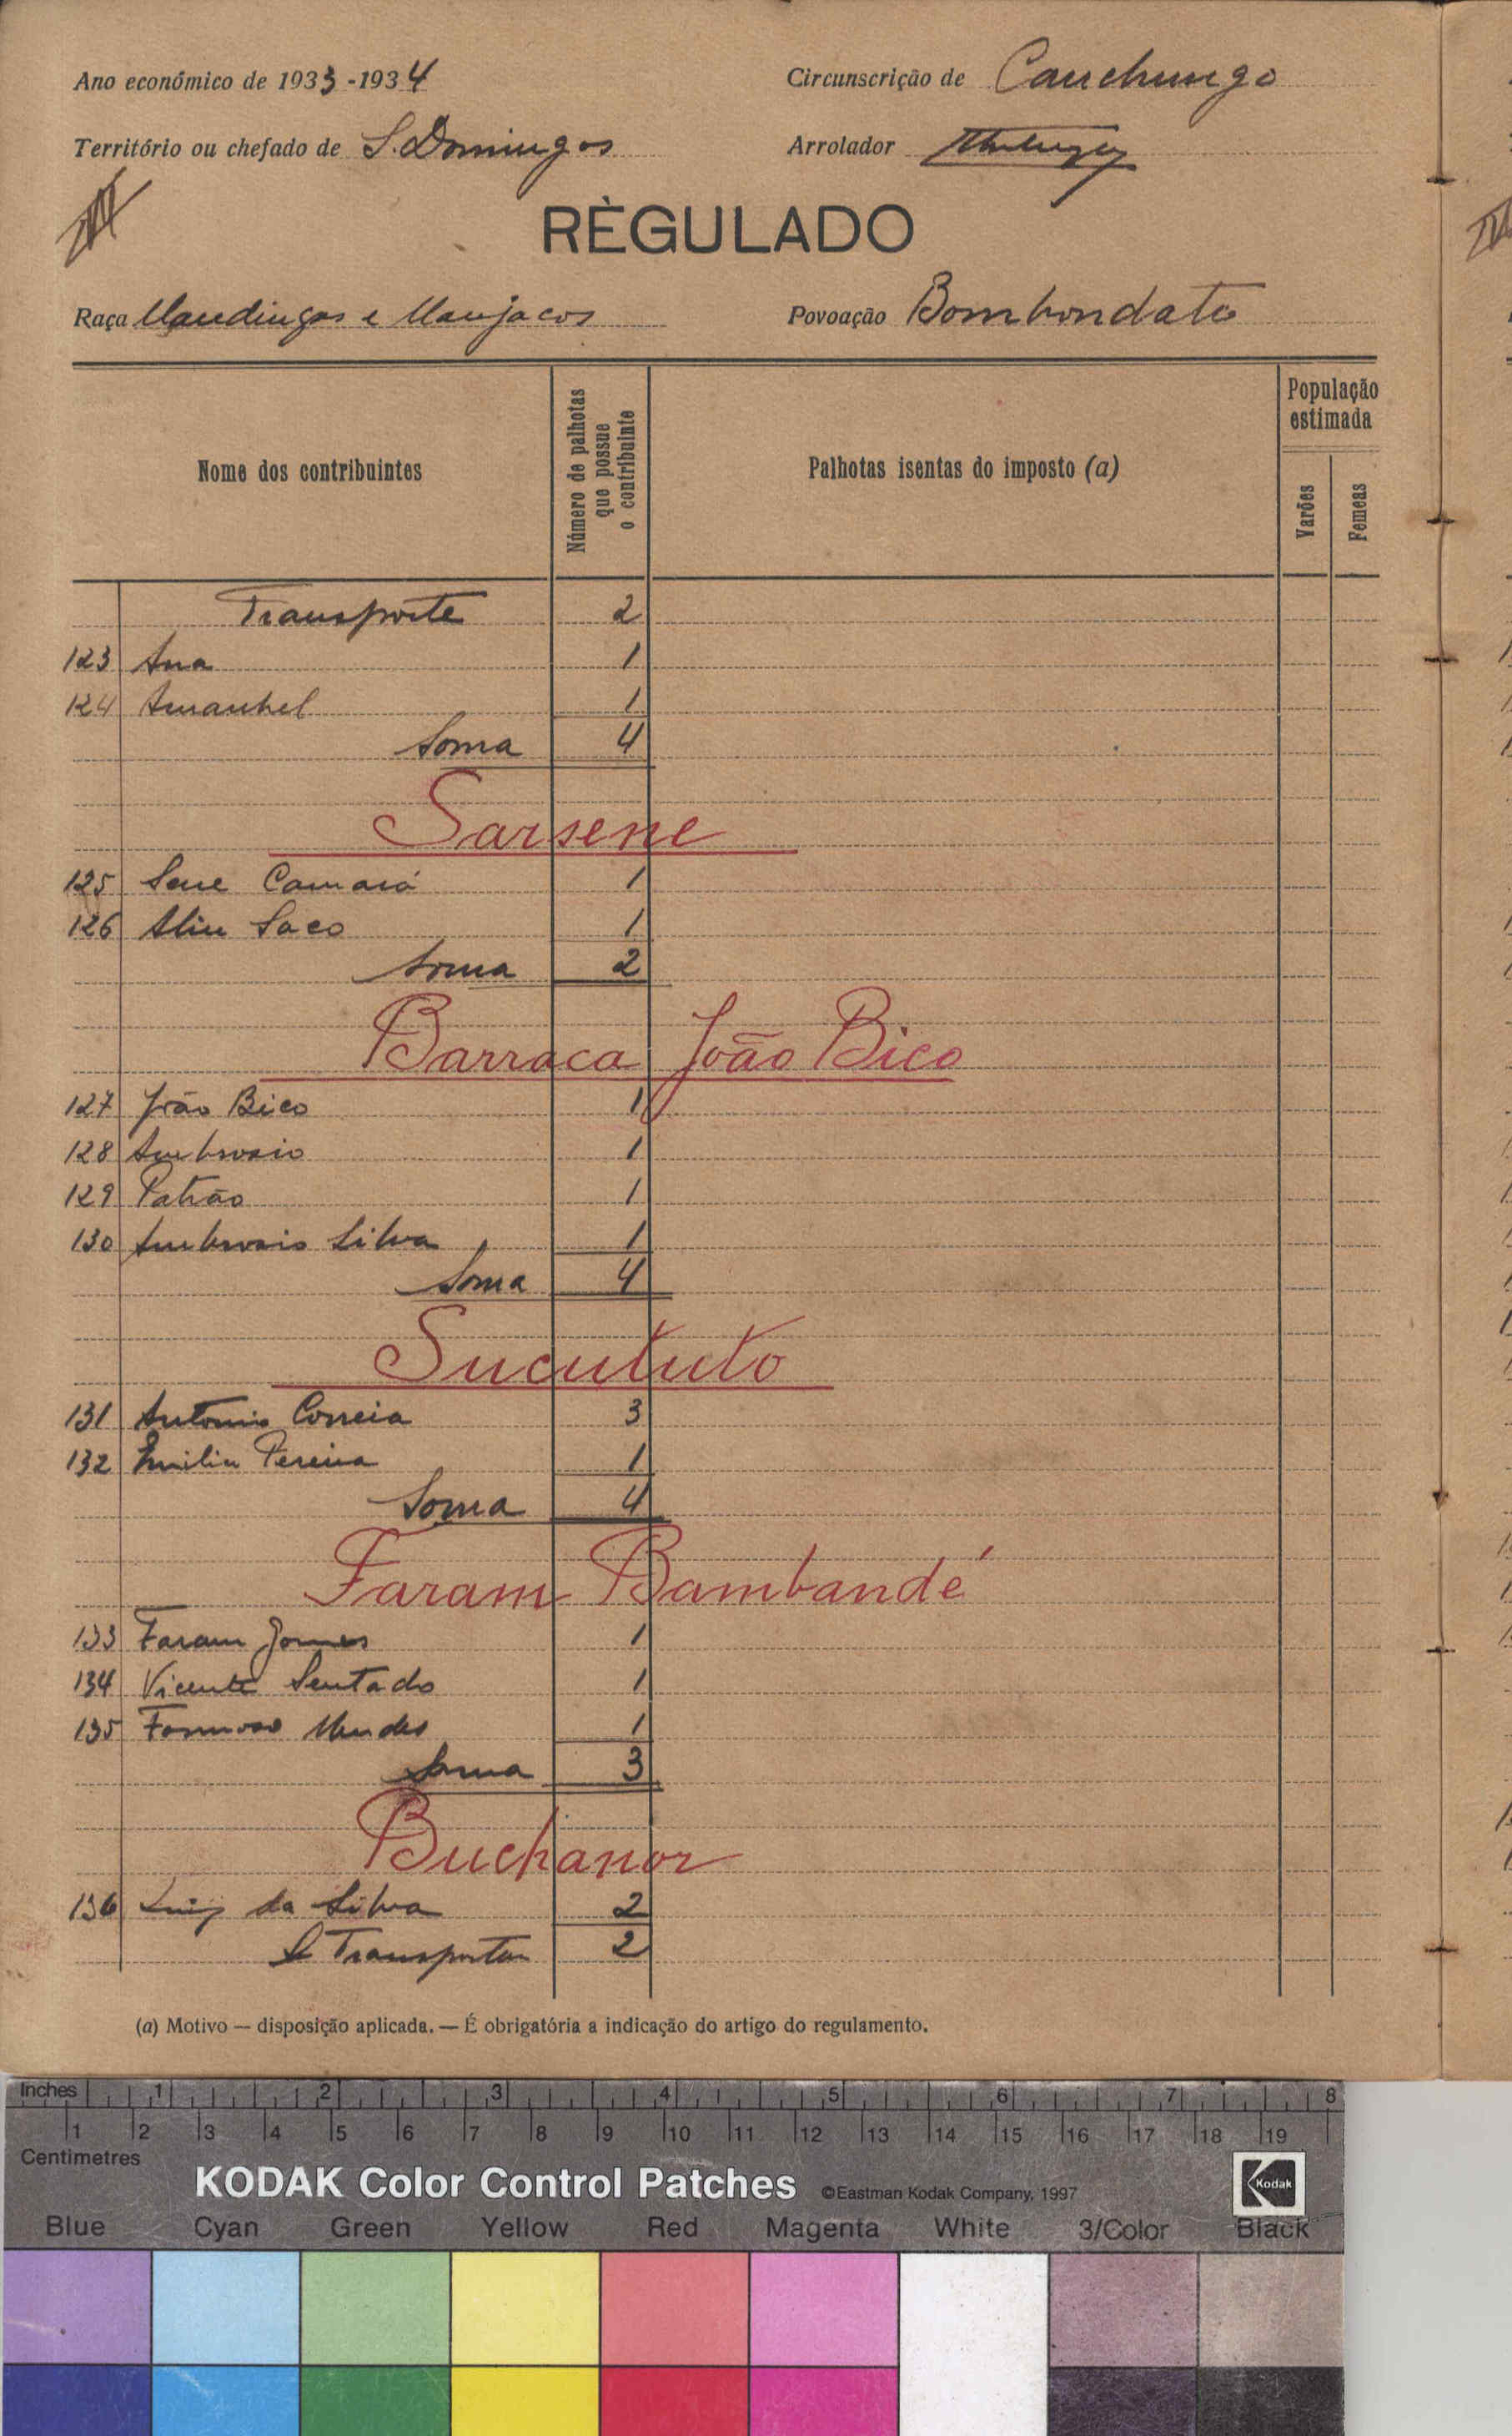 Ano económico de 1933-1934
Circunscrição de Canchungo
Território ou chefado de S. Domingos
Arrolador
RÈGULADO
Raça Mandingas e Manjacos
Povoação Bombondato
Nome dos contribuintes
Número de palhotas que possue o contribuinte
Palhotas isentas do imposto (a)
População estimada
Varões
Femeas
Transporte 2
123 Ana 1
124 Amanhel 1
Soma 4
Sarsene
125 Sene Camará 1
126 Aliu Saco 1
Soma 2
Barraca João Bico
127 João Bico 1
128 Ambrosio 1
129 Patrão 1
130 Ambrosio Silva 1
Soma 4
Sucututo
131 Antonio Correia 3
132 Emilia Pereira 1
Soma 4
Faram Bambandé
133 Faram Gomes 1
134 Vicente Sentado 1
135 Formoso Mendes 1
Soma 3
Buchanor
136 Luiz da Silva 2
A Transportar 2
(a) Motivo — disposição aplicada. — É obrigatória a indicação do artigo do regulamento.
Inches 1 2 3 4 5 6 7 8
1 2 3 4 5 6 7 8 9 10 11 12 13 14 15 16 17 18 19
Centimetres
KODAK Color Control Patches ©Eastman Kodak Company, 1997 Kodak
Blue Cyan Green Yellow Red Magenta White 3/Color Black